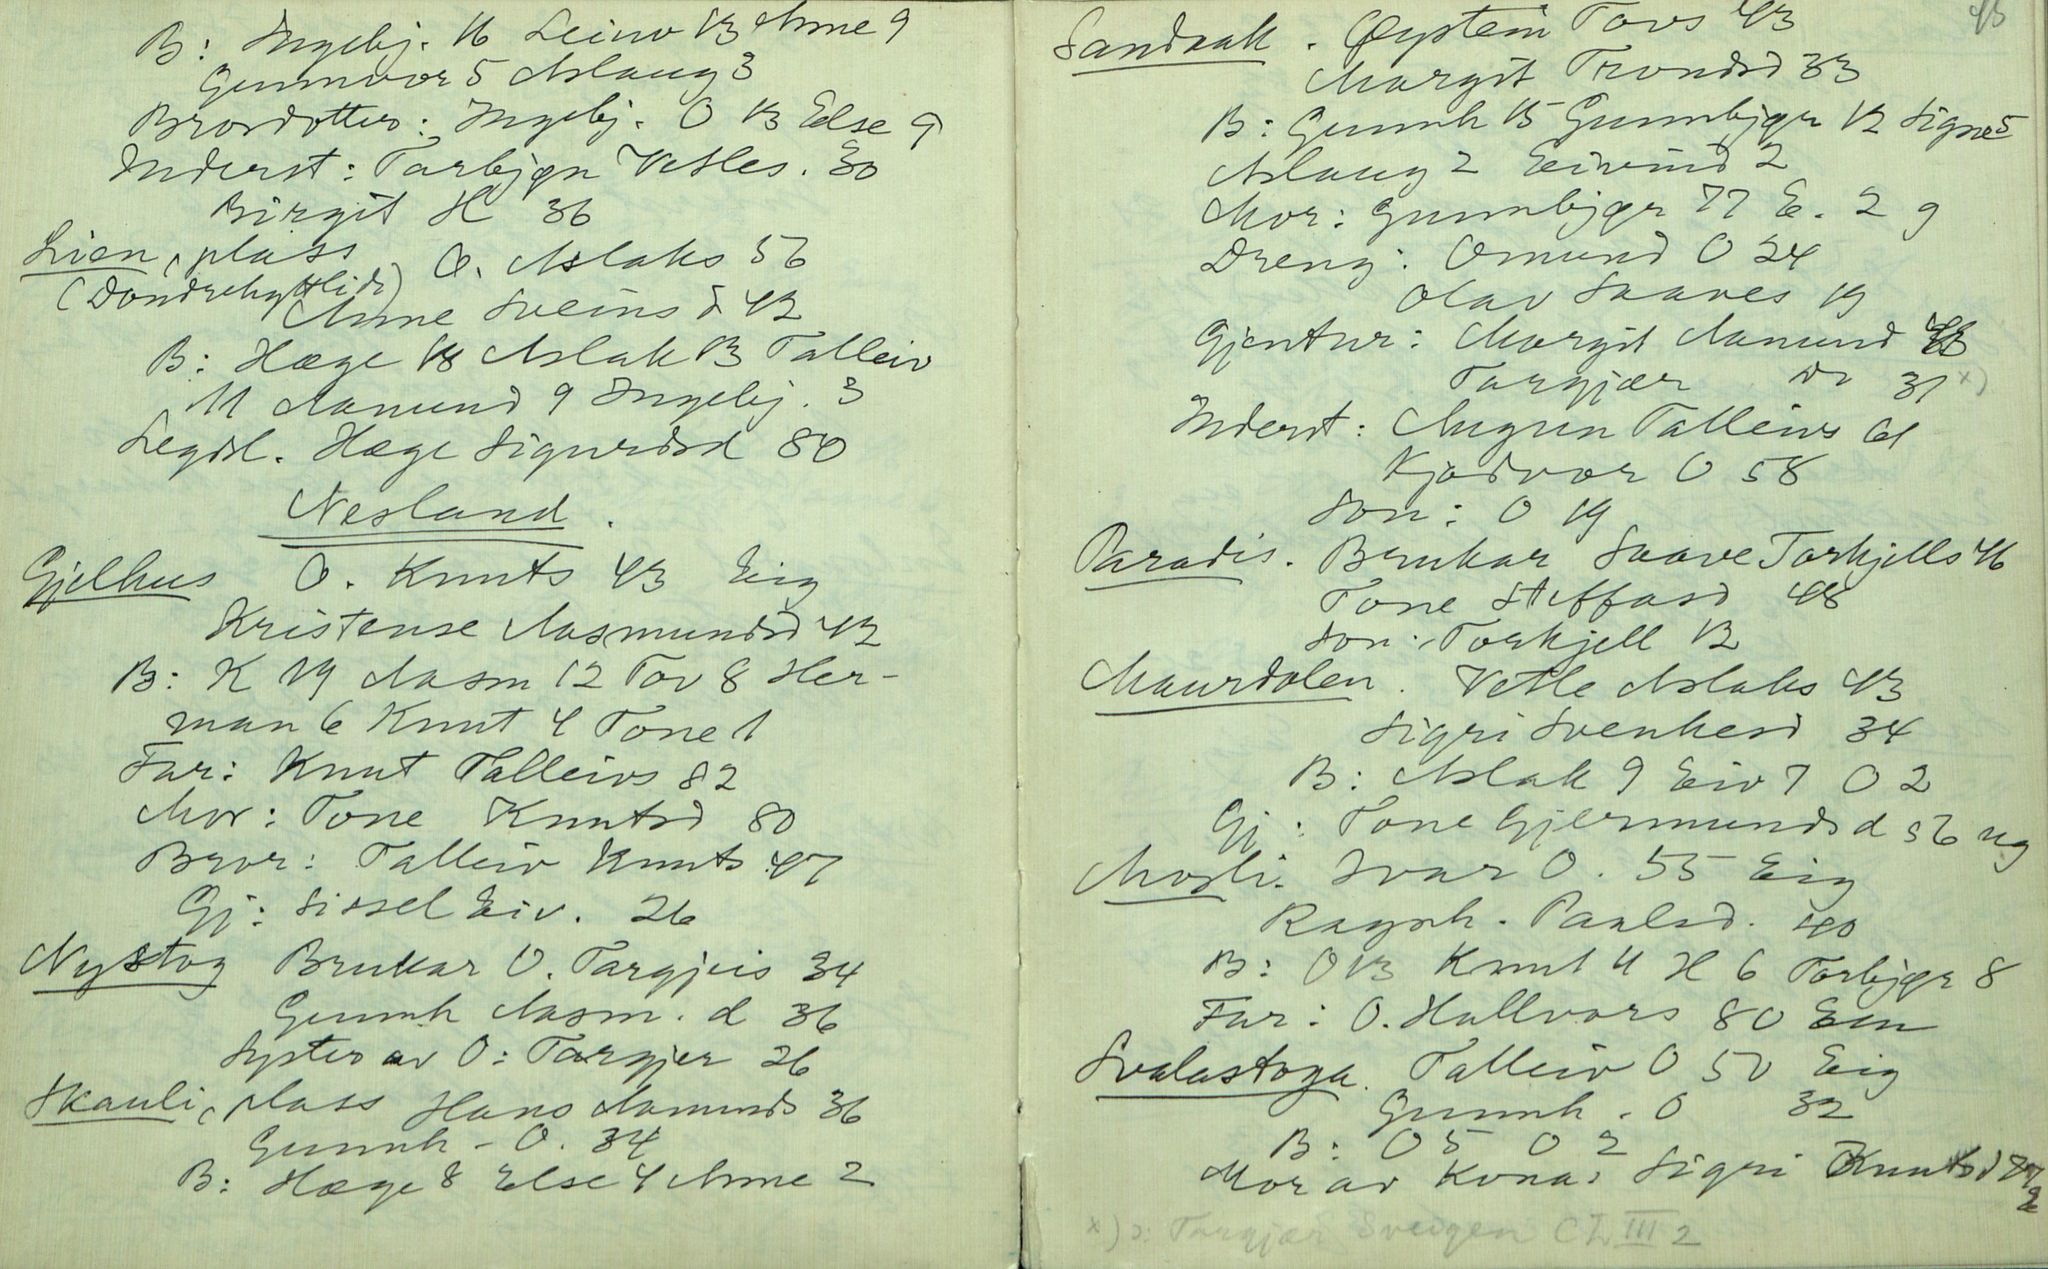 B: Ingebj. 16 Leiuv 13 Anne 9
Gunnvor 5 Aslaug 3
Brordotter: Ingebj. O 13 Else 9
Inderst: Tarbjøn Vetles. 30
Birgit H 36
Lien, plass O. Aslaks 56
(Dondrehyttlid)
Anne Sveins d 42
B: Hæge 18 Aslak 13 Talleiv
11 Aamund 9 Ingebj. 3
Legdsl. Hæge Sigurdsd 80
Nesland.
Gjelhus O. Knuts 43 Eig
Kristense Aasmundsd 42
B: K 19 Aasm 12 Tov 8 Her-
man 6 Knut 4 Tone 1
Far: Knut Talleivs 82
Mor: Tone Knutsd 80
Bror: Talleiv Knuts 47
Gj: Sissel Eiv. 26
Nystog Brukar O. Targjeis 34
Gunnh Aasm. d 36
Syster av O: Targjer 26
Skauli, plass Hans Aamunds 36
Gunnh - O. 34
B: Hæge 8 Else 4 Anne 2
43
Sandsak. Øystein Tovs 43
Margit Trondsd 33
B: Gunnh 15 Gunnbjør 12 Signe 5
Aslaug 2 Eivind 2
Mor: Gunnbjør 77 E. 2 g
Dreng: Omund O 24
Olav Saaves 19
Gjentur: Margit Aamund 43
Targjær do 31 x)
Inderst: Augun Talleivs 61
Kjødvor O 58
Son: O 19
Paradis. Brukar Saave Torkjells 46
Tone Steffasd 48
Son: Torkjell 12
Maurdalen. Vetle Aslaks 43
Sigri Svenkesd 34
B: Aslak 9 Eiv 7 O 2
Gj: Tone Gjermundsd 56 ug
Mosli. Ivar O. 55 Eig
Ragnh. Paalsd. 40
B: O 13 Knut 11 H 6 Torbjør 8
Far: O. Hallvors 80 Em
Svalastoga. Talleiv O 50 Eig
Gunnh. O 32
B: O 5 O 2
Mor av Kona: Sigri Knutsd
x) ɔ: Targjær Sveigen CL III 2